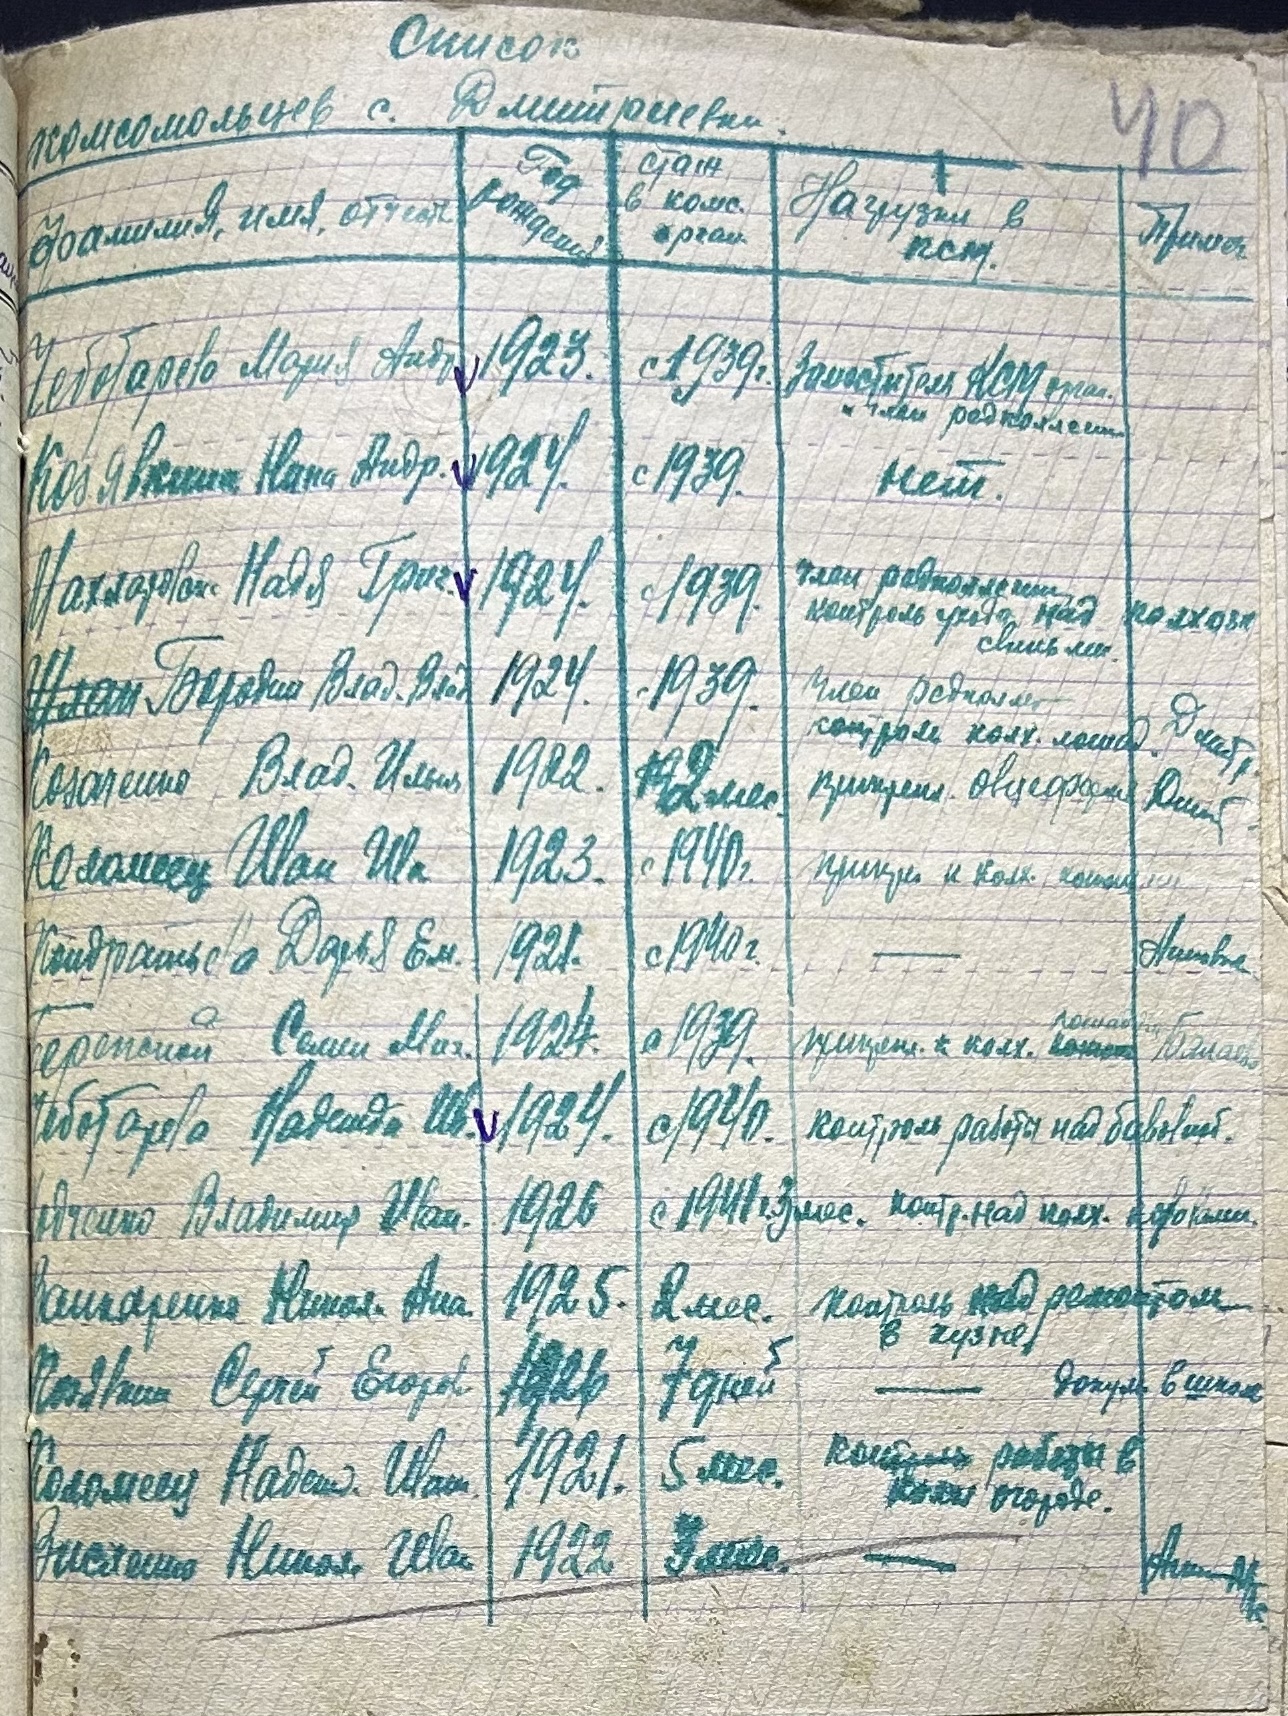 Список
комсомольцев с. Дмитриевки.
40
Фамилия, имя, отчест. Год рождения стаж в комс. орган. Нагрузки в ксм. Примеч
Чеботарева Мария Андр. 1923. с 1939г. Заместитель КСМ орган.
и член редколлегии
Козявкина Нина Андр. 1924. с 1939. нет.
Надя Григ. 1924. с 1939. член редколлегии
контроль ухода над колхозн
свиньми.
Бородин Влад. Влад 1924. с 1939. член редколлег
контроль колх. лошад. Дмитр.
Козаченко Влад. Ильич 1922. 2 мес. прикрепл. Дмит
Коломеец Иван Ив. 1923. с 1940г. прикреп к колх.
Кондратьева Дарья Ем. 1921. с 1940г. —
Семен Мих. 1924. с 1939. прикрепл. к колх.
Чеботарева Надежда Ив. 1924. с 1940. контроль работы над
Владимир Иван. 1926 с 1941г. 3 мес. контр. над колх. коровами.
Николай 1925. 2 мес. контроль над ремонтом
в кузне
Козявкин Сергей Егоров 1926 7 дней — в школе
Коломеец Надеж. Иван. 1921. 5 мес. контроль работы в
колх огороде.
Никол. Иван 1922 3 мес. —